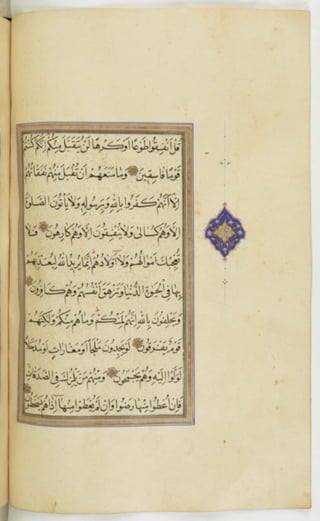 قُلْ أَنْفِقُوا طَوْعًا أَوْ كَرْهًا لَنْ يُتَقَبَّلَ مِنْكُمْ إِنَّكُمْ كُنْتُمْ
قَوْمًا فَاسِقِينَ وَمَا مَنَعَهُمْ أَنْ تُقْبَلَ مِنْهُمْ نَفَقَاتُهُمْ
إِلَّا أَنَّهُمْ كَفَرُوا بِاللَّهِ وَبِرَسُولِهِ وَلَا يَأْتُونَ الصَّلَوةَ
إِلَّا وَهُمْ كُسَالَى وَلَا يُنْفِقُونَ إِلَّا وَهُمْ كَارِهُونَ فَلَا
تُعْجِبْكَ أَمْوَالُهُمْ وَلَا أَوْلَادُهُمْ إِنَّمَا يُرِيدُ اللَّهُ لِيُعَذِّبَهُمْ
بِهَا فِي الْحَيَوةِ الدُّنْيَا وَتَزْهَقَ أَنْفُسُهُمْ وَهُمْ كَافِرُونَ
وَيَحْلِفُونَ بِاللَّهِ إِنَّهُمْ لَمِنْكُمْ وَمَا هُمْ مِنْكُمْ وَلَكِنَّهُمْ
قَوْمٌ يَفْرَقُونَ لَوْ يَجِدُونَ مَلْجَأً أَوْ مَغَارَاتٍ أَوْ مُدَّخَلًا
لَوَلَّوْا إِلَيْهِ وَهُمْ يَجْمَحُونَ وَمِنْهُمْ مَنْ يَلْمِزُكَ فِي الصَّدَقَاتِ
فَإِنْ أُعْطُوا مِنْهَا رَضُوا وَإِنْ لَمْ يُعْطَوْا مِنْهَا إِذَا هُمْ يَسْخَطُونَ